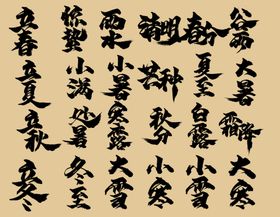 立春 惊蛰 雨水 清明 春分 谷雨
立夏 小满 小暑 芒种 夏至 大暑
立秋 处暑 寒露 秋分 白露 霜降
立冬 冬至 大雪 小寒 小雪 大寒